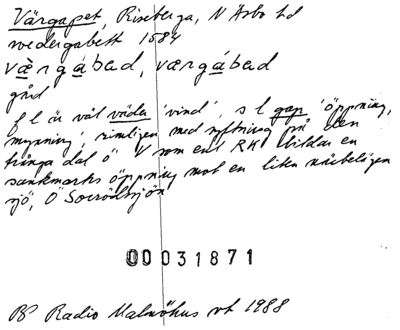 Värgapet, Riseberga, N Åsbo hd
wedergabett 1584
værgábad, værgábad
gård
f l är väl väder 'vind', s l gap 'öppning,
mynning', rimligen med syftning på den
trånga dal ö V som enl RK bildar en
sankmarks öppning mot en liten närbelägen
sjö, Ö Sorrödssjön
00031871
BP Radio Malmöhus vt 1988